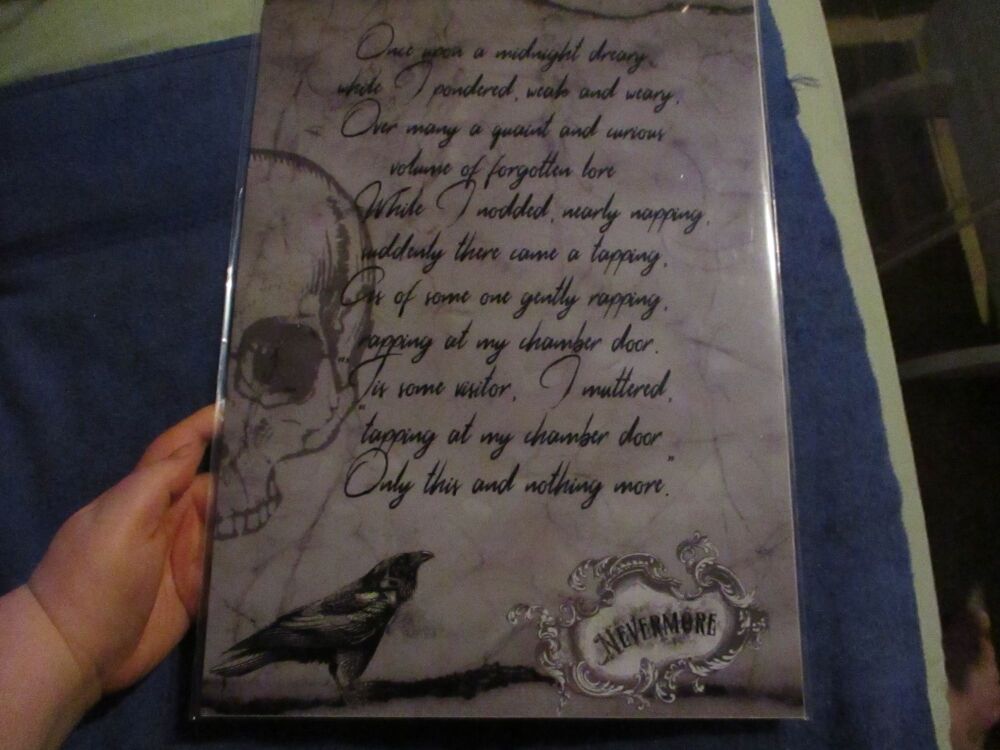 Once upon a midnight dreary,
while I pondered, weak and weary,
Over many a quaint and curious
volume of forgotten lore
While I nodded, nearly napping,
suddenly there came a tapping,
As of some one gently rapping,
rapping at my chamber door.
"'Tis some visitor, I muttered,
"tapping at my chamber door
Only this and nothing more."
NEVERMORE